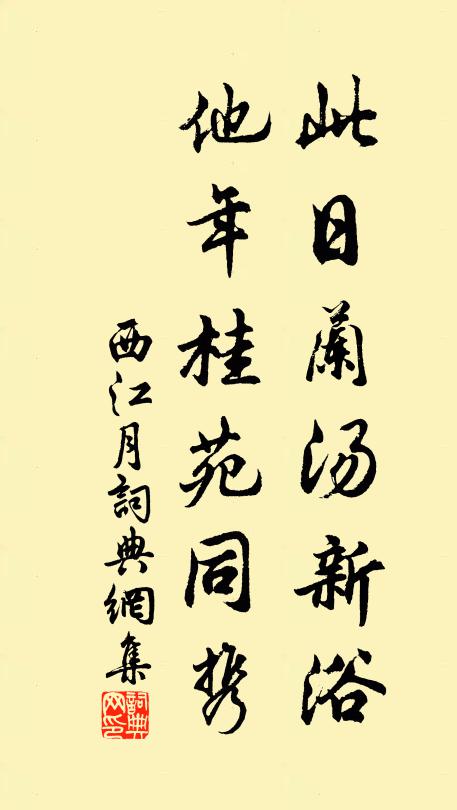 此日蘭汤新浴
他年桂苑同携
西江月詞典網集
詞典网印